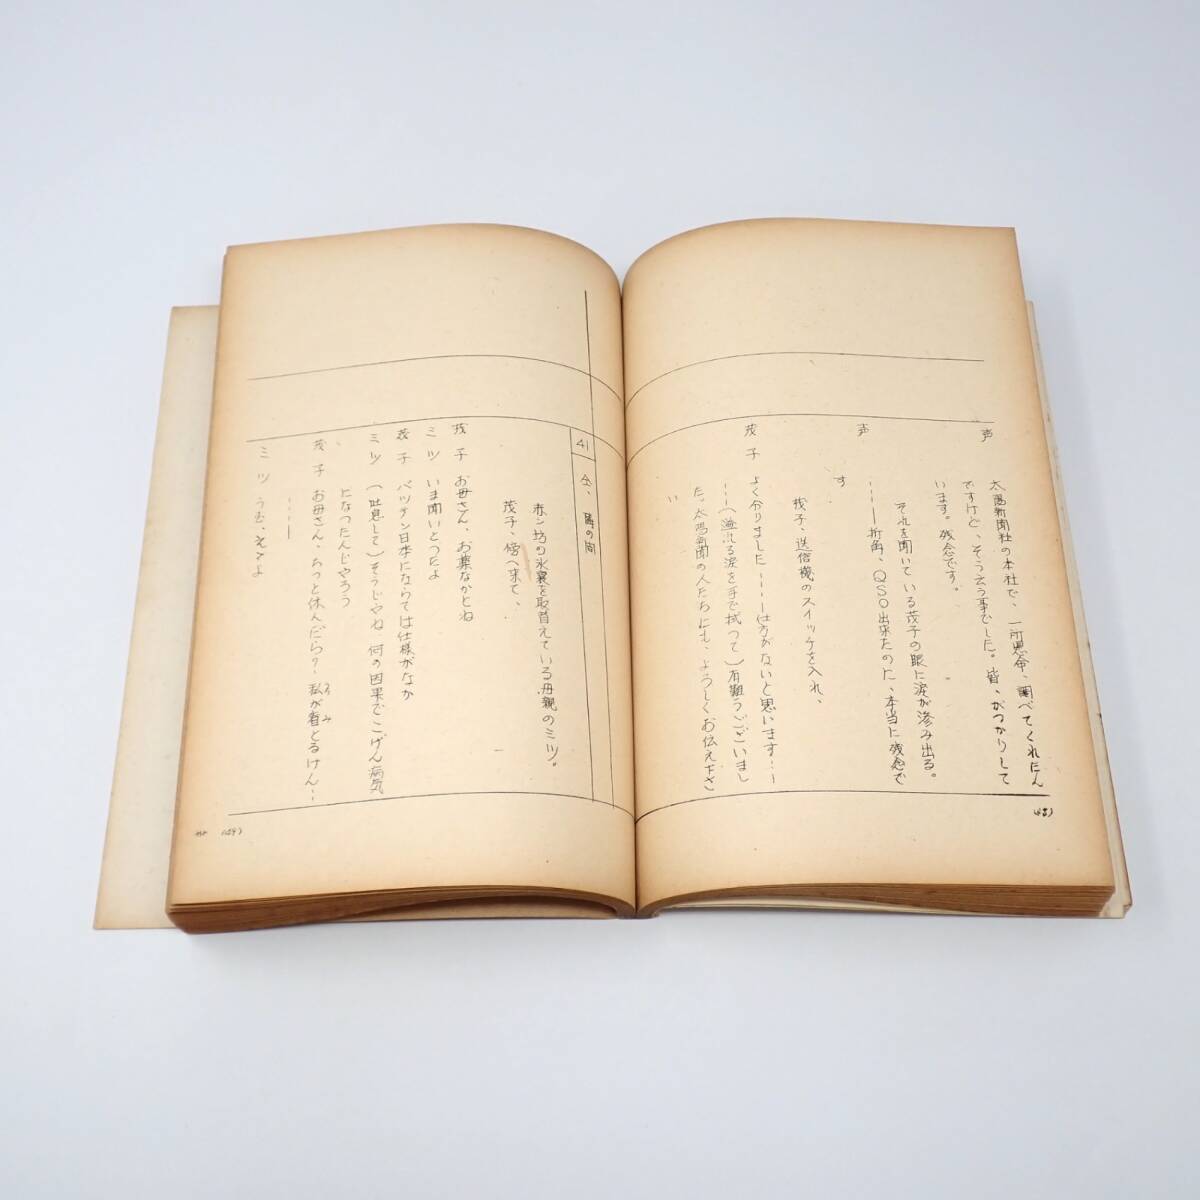 声　太陽新聞社の本社で、一所懸命、調べてくれたん
ですけど、そう云う事でした。皆、がつかりして
います。残念です。
それを聞いている茂子の眼に涙が滲み出る。
声　……折角、QSO出来たのに、本当に残念で
す
茂子、送信機のスイッチを入れ、
茂子　よく分りました……仕方がないと思います……
……（溢れる涙を手で拭つて）有難うございまし
た。太陽新聞の人たちにも、よろしくお伝え下さ
い
(48)
41　仝、隣の間
赤ン坊の氷嚢を取替えている母親のミツ。
茂子、傍へ来て、
茂子　お母さん、お薬なかとね
ミツ　いま聞いとつたよ
茂子　バッテン日本にならては仕様がなか
ミツ　（吐息して）そうじやね　何の因果でこげん病気
になつたんじやろう
茂子　お母さん、ちつと休んだら？私が看とるけん……
……
ミツ　うむ、ええよ
(49)